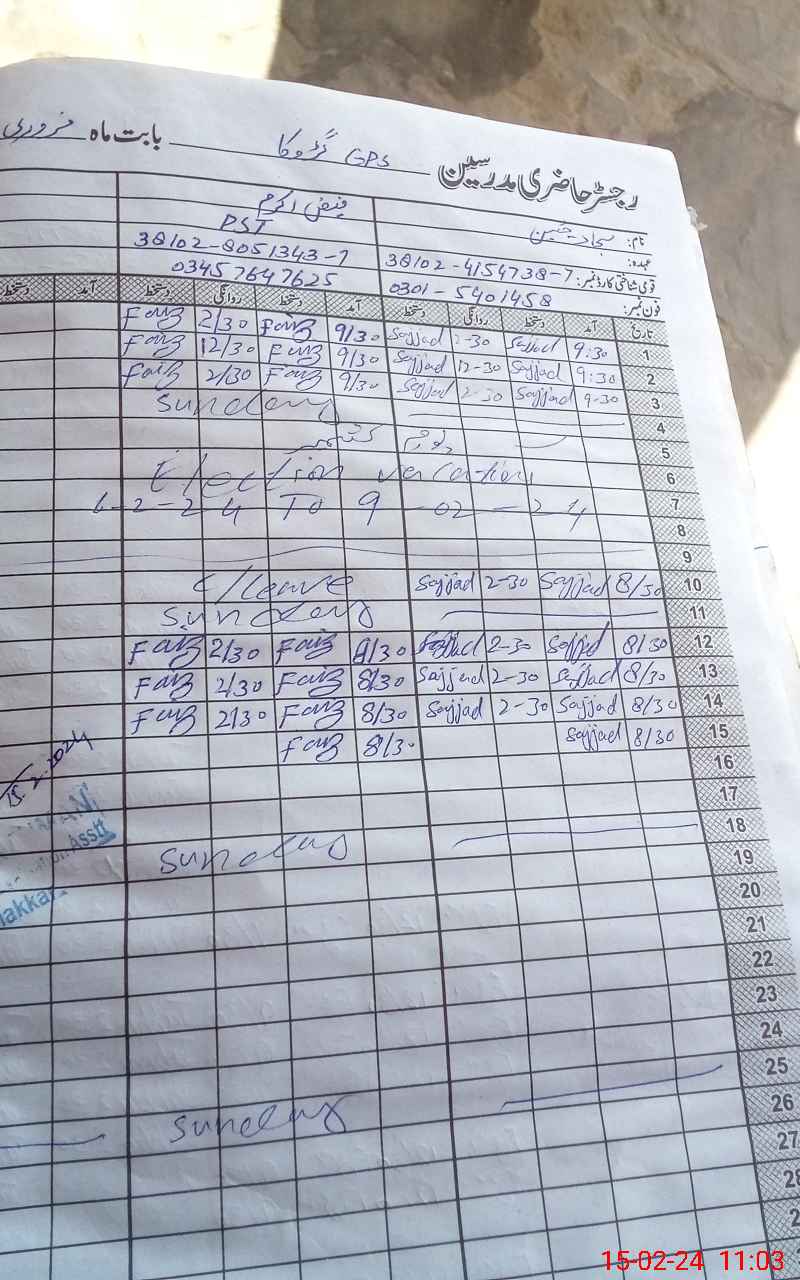 رجسٹر حاضری مدرسین GPS بابت ماہ فروری
نام: سجاد حسین فیض اکرم
عہدہ: PST
قومی شناختی کارڈ نمبر: 38102-4154738-7 38102-8051343-7
فون نمبر: 0301-5401458 03457647625
تاریخ آمد دستخط روانگی دستخط آمد دستخط روانگی دستخط آمد دستخط
1 9:30 Sajjad 2-30 Sajjad 9/30 Faiz 2/30 Faiz
2 9:30 Sajjad 12-30 Sajjad 9/30 Faiz 12/30 Faiz
3 9-30 Sajjad 2-30 Sajjad 9/30 Faiz 2/30 Faiz
4 Sunday
5 یوم کشمیر
6 Election vacation
7 6-2-24 To 9-02-24
8
9
10 8/30 Sajjad 2-30 Sajjad C/leave
11 Sunday
12 8/30 Sajjad 2-30 Sajjad 8/30 Faiz 2/30 Faiz
13 8/30 Sajjad 2-30 Sajjad 8/30 Faiz 2/30 Faiz
14 8/30 Sajjad 2-30 Sajjad 8/30 Faiz 2/30 Faiz
15 8/30 Sajjad 8/30 Faiz
16
15.2.2024
17
Asstt
18 Sunday
19
20
21
22
23
24
25 Sunday
26
27
28
15-02-24 11:03